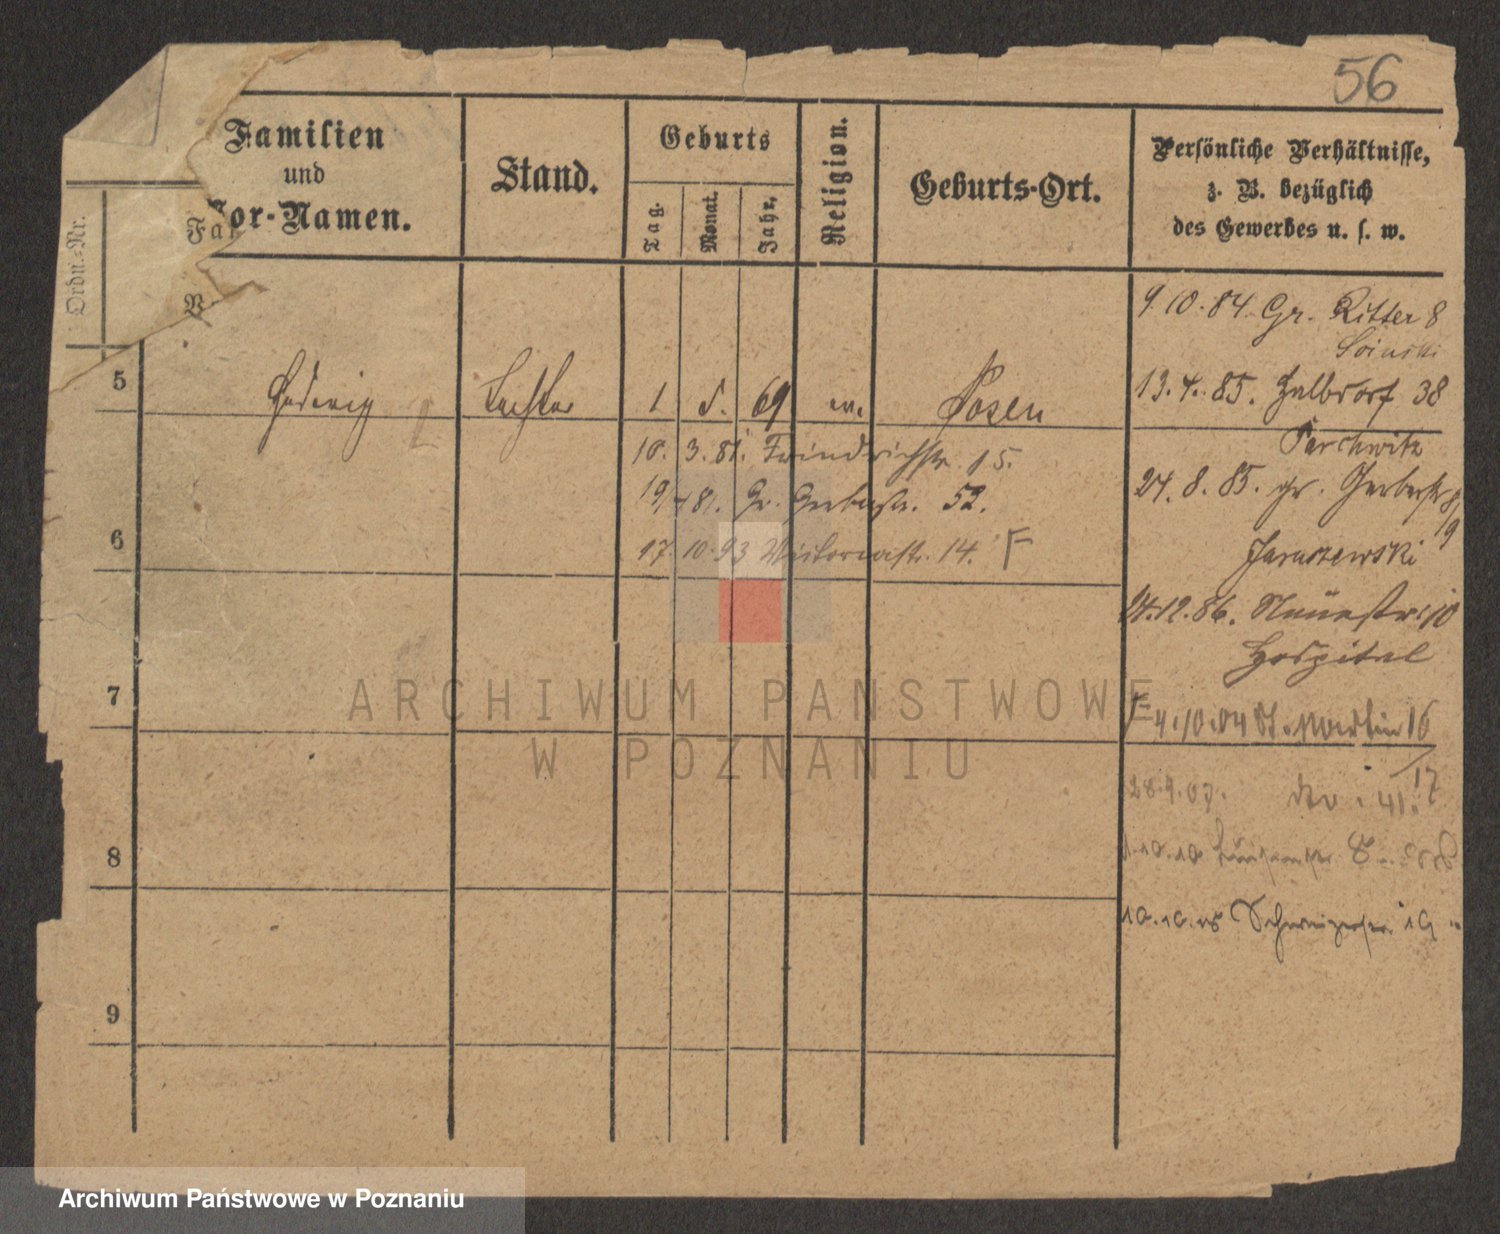 56
Familien
und
Vor-Namen.
Stand.
Geburts
Tag.
Monat.
Jahr.
Religion.
Geburts-Ort.
Persönliche Verhältnisse,
z. B. bezüglich
des Gewerbes u. s. w.
Ordn.-Nr.
Fa
V
9.10.84 Gr. Ritter 8
13.4.85. Halbdorf 38
5 Hedwig Tochter 1 5. 69 ev. Posen
Parchwitz
10. 3. 81. Friedrichstr. 15.
24. 8. 85. gr. Gerberstr. 8/
19 4 81. Gr. Gerberstr. 52.
19
6
17. 10. 93 Victoriastr. 14. F
Jaruszewski
14.12.86. Neuestr. 10
Hospital
7
F 4.10.04 St. Martin 16
17
28.9.07. 41.
8
1.10.10 8
10.10. Schweizerstr. 19
9
ARCHIWUM PAŃSTWOWE
W POZNANIU
Archiwum Państwowe w Poznaniu